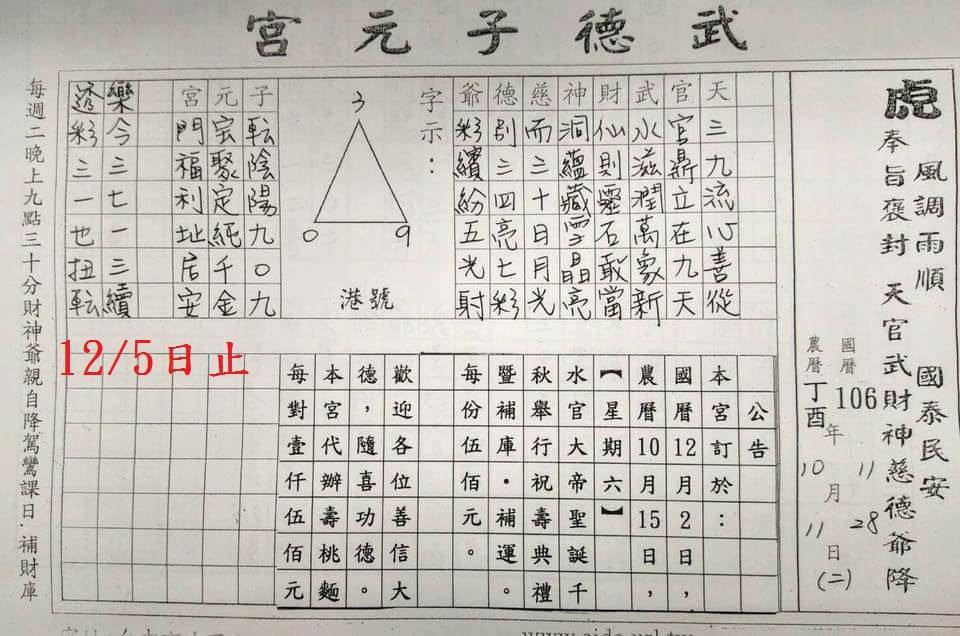 武德子元宮
虎
風調雨順 國泰民安
奉旨褒封 天官武財神慈德爺降
國曆 106年11月28日(二)
農曆 丁酉年10月11日
天三九流心善從
官官鼎立在九天
武水滋潤萬象新
財仙則靈石敢當
神洞蘊藏雲晶亮
慈而二十日月光
德別三四亮七彩
爺彩繽紛五光射
字示：
3
0 9
港號
子転陰陽九0九
元宏聚定純千金
宮門福利址居安
樂今三七一三續
透彩三一也扭転
12/5日止
公告
本宮訂於：
國曆12月2日，
農曆10月15日
【星期六】
水官大帝聖誕千
秋舉行祝壽典禮
暨補庫·補運。
每份伍佰元。
歡迎各位善信大
德，隨喜功德。
本宮代辦壽桃麵
每對壹仟伍佰元
每週二晚上九點三十分財神爺親自降駕鸞課日·補財庫